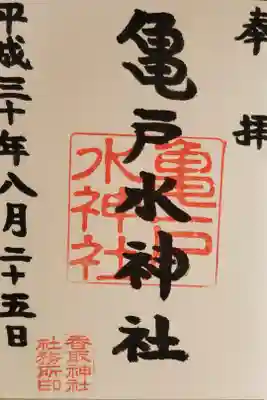 奉拝
亀戸水神社
亀戸
水神社
平成三十年八月二十五日
香取神社
社務所印